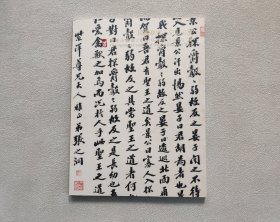 公探爵鷇鷇弱故反之晏子聞之不待
見景公汗出惕然晏子曰君胡為者也
我探爵鷇鷇弱故反之晏子逡巡北面
曰吾君有聖王之道矣景公曰寡人入探
鷇鷇弱故反之其當聖王之道者何
曰君探爵鷇鷇弱故反之是長幼也
仁愛禽獸之加焉而況於人乎此聖王之道
尊兄大人雅正弟張之洞